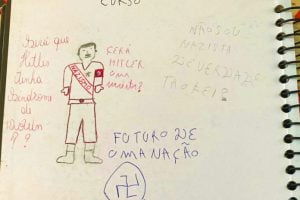 CURSO
Será que
Hitler
tinha
Síndrome
de
Down
??
SERÁ
HITLER
uma
NÃO SOU
NAZISTA
DE VERDADE
TAOKEI?
FUTURO DE
UMA NAÇÃO